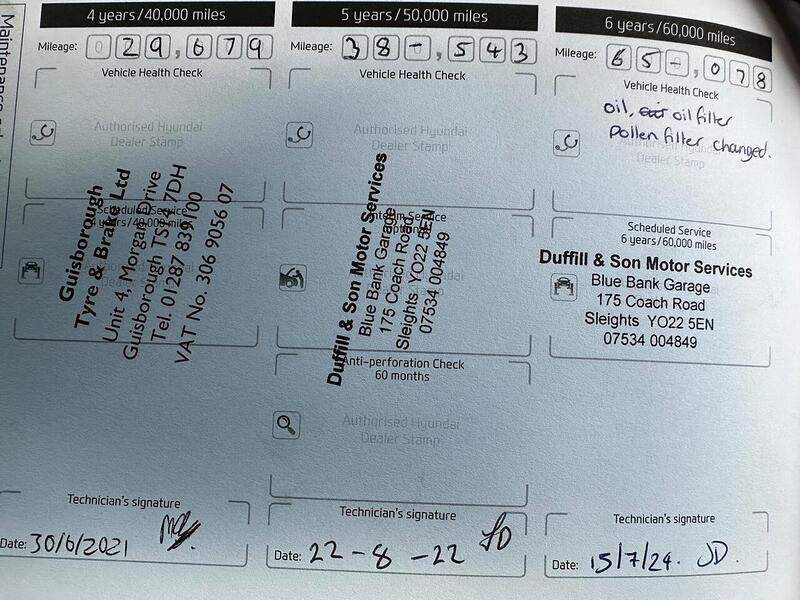 Maintenance
4 years/40,000 miles
Mileage: 029,679
Vehicle Health Check
Authorised Hyundai
Dealer Stamp
Scheduled Service
4 years/40,000 miles
Guisborough
Tyre & Brake Ltd
Unit 4, Morgan Drive
Guisborough TS14 7DH
Tel. 01287 839100
VAT No. 306 9056 07
Technician's signature
Date: 30/6/2021
5 years/50,000 miles
Mileage: 38-,543
Vehicle Health Check
Authorised Hyundai
Dealer Stamp
Interim Service
Duffill & Son Motor Services
Blue Bank Garage
175 Coach Road
Sleights YO22 5EN
07534 004849
Anti-perforation Check
60 months
Authorised Hyundai
Dealer Stamp
Technician's signature
Date: 22-8-22 JD
6 years/60,000 miles
Mileage: 65-,078
Vehicle Health Check
oil, air oil filter
pollen filter changed.
Dealer Stamp
Scheduled Service
6 years/60,000 miles
Duffill & Son Motor Services
Blue Bank Garage
175 Coach Road
Sleights YO22 5EN
07534 004849
Technician's signature
Date: 15/7/24. JD.